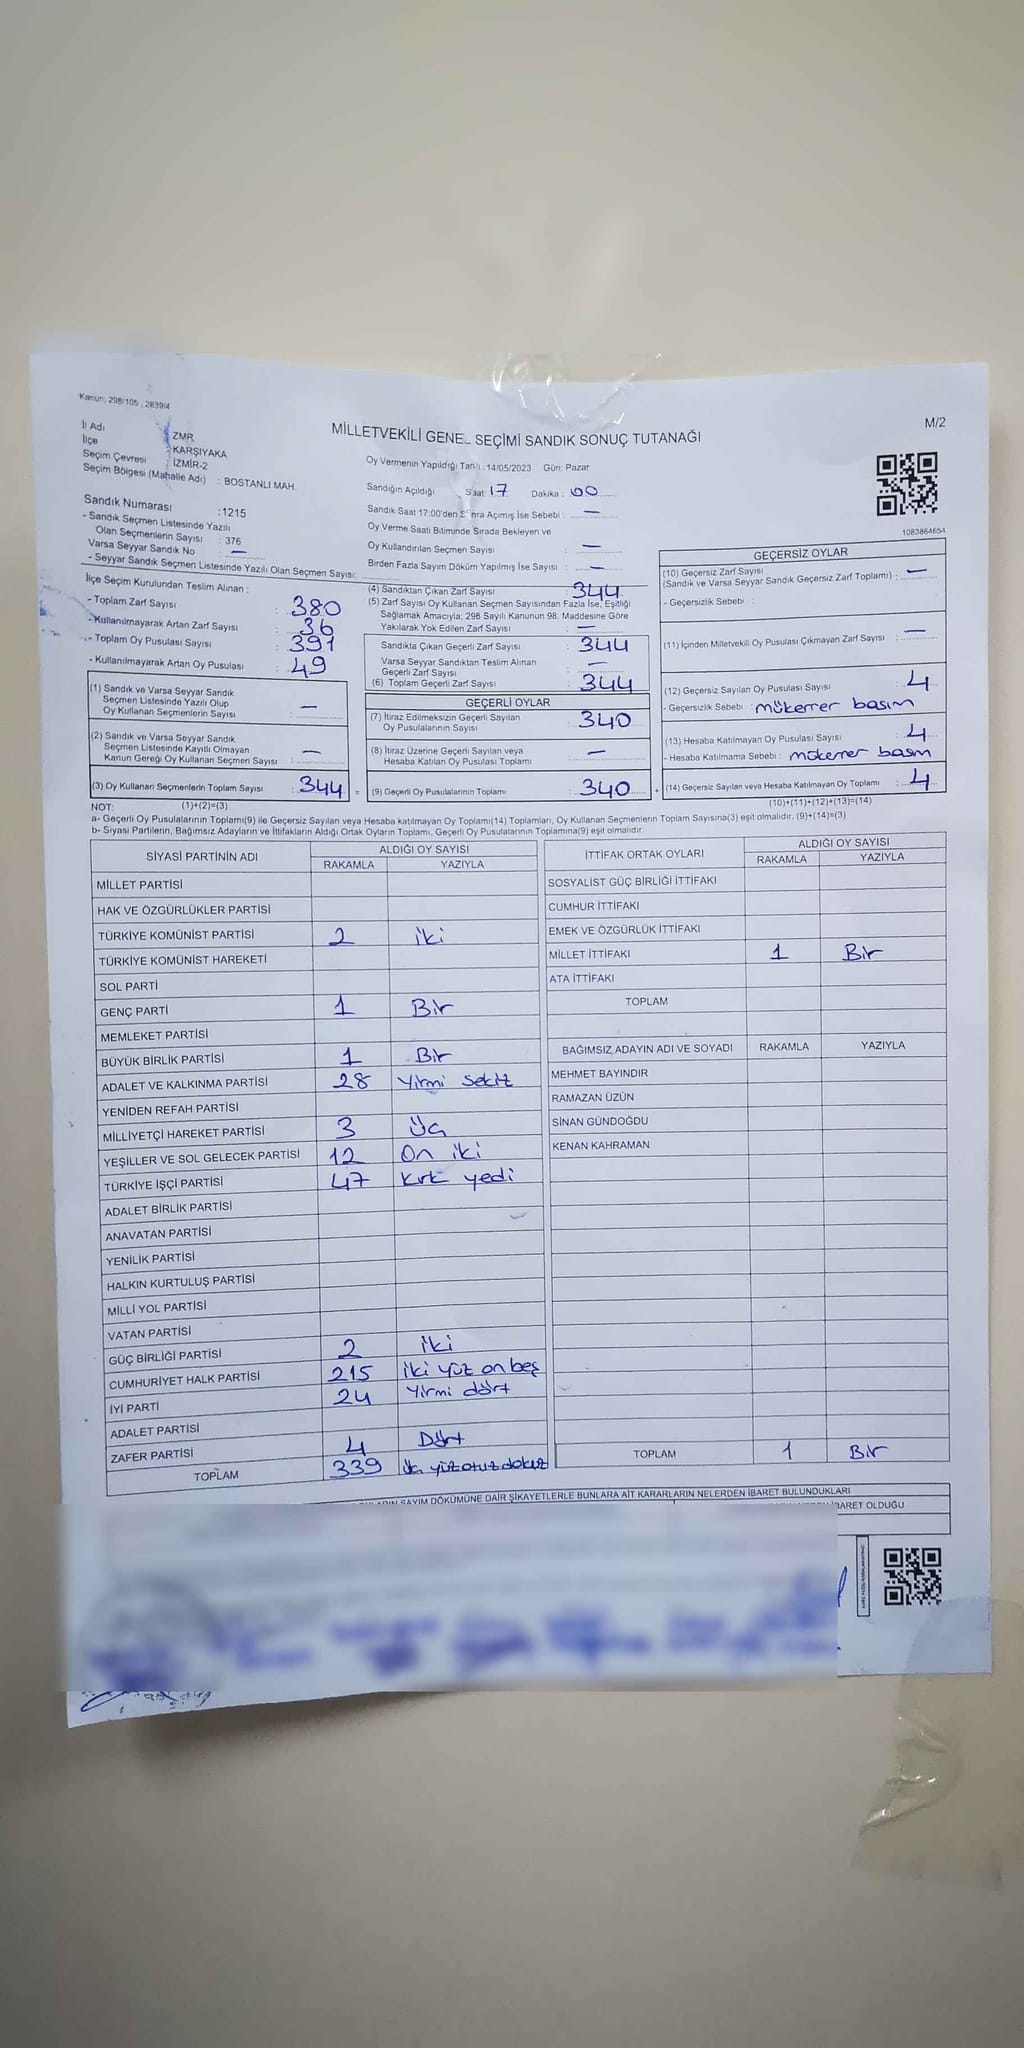 Kanun; 298/105 , 2839/4
M/2
MİLLETVEKİLİ GENEL SEÇİMİ SANDIK SONUÇ TUTANAĞI
İl Adı ZMR
İlçe KARŞIYAKA
Seçim Çevresi İZMİR-2
Seçim Bölgesi (Mahalle Adı) : BOSTANLI MAH.
Sandık Numarası :1215
- Sandık Seçmen Listesinde Yazılı
Olan Seçmenlerin Sayısı : 376
Varsa Seyyar Sandık No : —
- Seyyar Sandık Seçmen Listesinde Yazılı Olan Seçmen Sayısı:
Oy Vermenin Yapıldığı Tarih : 14/05/2023 Gün: Pazar
Sandığın Açıldığı Saat: 17 Dakika : 00
Sandık Saat 17:00'den Sonra Açımış İse Sebebi : —
Oy Verme Saati Bitiminde Sırada Bekleyen ve
Oy Kullandırılan Seçmen Sayısı : —
Birden Fazla Sayım Döküm Yapılmış İse Sayısı : —
1083864654
İlçe Seçim Kurulundan Teslim Alınan :
- Toplam Zarf Sayısı : 380
- Kullanılmayarak Artan Zarf Sayısı : 36
- Toplam Oy Pusulası Sayısı : 391
- Kullanılmayarak Artan Oy Pusulası : 49
(1) Sandık ve Varsa Seyyar Sandık
Seçmen Listesinde Yazılı Olup
Oy Kullanan Seçmenlerin Sayısı : —
(2) Sandık ve Varsa Seyyar Sandık
Seçmen Listesinde Kayıtlı Olmayan
Kanun Gereği Oy Kullanan Seçmen Sayısı : —
(3) Oy Kullanan Seçmenlerin Toplam Sayısı : 344 =
(4) Sandıktan Çıkan Zarf Sayısı : 344
(5) Zarf Sayısı Oy Kullanan Seçmen Sayısından Fazla İse, Eşitliği
Sağlamak Amacıyla; 298 Sayılı Kanunun 98. Maddesine Göre
Yakılarak Yok Edilen Zarf Sayısı : —
Sandıkta Çıkan Geçerli Zarf Sayısı : 344
Varsa Seyyar Sandıktan Teslim Alınan
Geçerli Zarf Sayısı : —
(6) Toplam Geçerli Zarf Sayısı : 344
GEÇERLİ OYLAR
(7) İtiraz Edilmeksizin Geçerli Sayılan
Oy Pusulalarının Sayısı : 340
(8) İtiraz Üzerine Geçerli Sayılan veya
Hesaba Katılan Oy Pusulası Toplamı : —
(9) Geçerli Oy Pusulalarının Toplamı : 340 +
GEÇERSİZ OYLAR
(10) Geçersiz Zarf Sayısı
(Sandık ve Varsa Seyyar Sandık Geçersiz Zarf Toplamı) : —
- Geçersizlik Sebebi :
(11) İçinden Milletvekili Oy Pusulası Çıkmayan Zarf Sayısı : —
(12) Geçersiz Sayılan Oy Pusulası Sayısı : 4
- Geçersizlik Sebebi : mükerrer basım
(13) Hesaba Katılmayan Oy Pusulası Sayısı : 4
- Hesaba Katılmama Sebebi : mükerrer basım
(14) Geçersiz Sayılan veya Hesaba Katılmayan Oy Toplamı : 4
(10)+(11)+(12)+(13)=(14)
NOT: (1)+(2)=(3)
a- Geçerli Oy Pusulalarının Toplamı(9) ile Geçersiz Sayılan veya Hesaba katılmayan Oy Toplamı(14) Toplamları, Oy Kullanan Seçmenlerin Toplam Sayısına(3) eşit olmalıdır. (9)+(14)=(3)
b- Siyasi Partilerin, Bağımsız Adayların ve İttifakların Aldığı Ortak Oyların Toplamı, Geçerli Oy Pusulalarının Toplamına(9) eşit olmalıdır.
SİYASİ PARTİNİN ADI ALDIĞI OY SAYISI
RAKAMLA YAZIYLA
MİLLET PARTİSİ
HAK VE ÖZGÜRLÜKLER PARTİSİ
TÜRKİYE KOMÜNİST PARTİSİ 2 iki
TÜRKİYE KOMÜNİST HAREKETİ
SOL PARTİ
GENÇ PARTİ 1 Bir
MEMLEKET PARTİSİ
BÜYÜK BİRLİK PARTİSİ 1 Bir
ADALET VE KALKINMA PARTİSİ 28 Yirmi sekiz
YENİDEN REFAH PARTİSİ
MİLLİYETÇİ HAREKET PARTİSİ 3 Üç
YEŞİLLER VE SOL GELECEK PARTİSİ 12 On iki
TÜRKİYE İŞÇİ PARTİSİ 47 Kırk yedi
ADALET BİRLİK PARTİSİ
ANAVATAN PARTİSİ
YENİLİK PARTİSİ
HALKIN KURTULUŞ PARTİSİ
MİLLİ YOL PARTİSİ
VATAN PARTİSİ
GÜÇ BİRLİĞİ PARTİSİ 2 iki
CUMHURİYET HALK PARTİSİ 215 iki yüz on beş
İYİ PARTİ 24 Yirmi dört
ADALET PARTİSİ
ZAFER PARTİSİ 4 Dört
TOPLAM 339 üç yüz otuz dokuz
İTTİFAK ORTAK OYLARI ALDIĞI OY SAYISI
RAKAMLA YAZIYLA
SOSYALİST GÜÇ BİRLİĞİ İTTİFAKI
CUMHUR İTTİFAKI
EMEK VE ÖZGÜRLÜK İTTİFAKI
MİLLET İTTİFAKI 1 Bir
ATA İTTİFAKI
TOPLAM
BAĞIMSIZ ADAYIN ADI VE SOYADI RAKAMLA YAZIYLA
MEHMET BAYINDIR
RAMAZAN ÜZÜN
SİNAN GÜNDOĞDU
KENAN KAHRAMAN
TOPLAM 1 Bir
SAYIM DÖKÜMÜNE DAİR ŞİKAYETLERLE BUNLARA AİT KARARLARIN NELERDEN İBARET BULUNDUKLARI
İBARET OLDUĞU